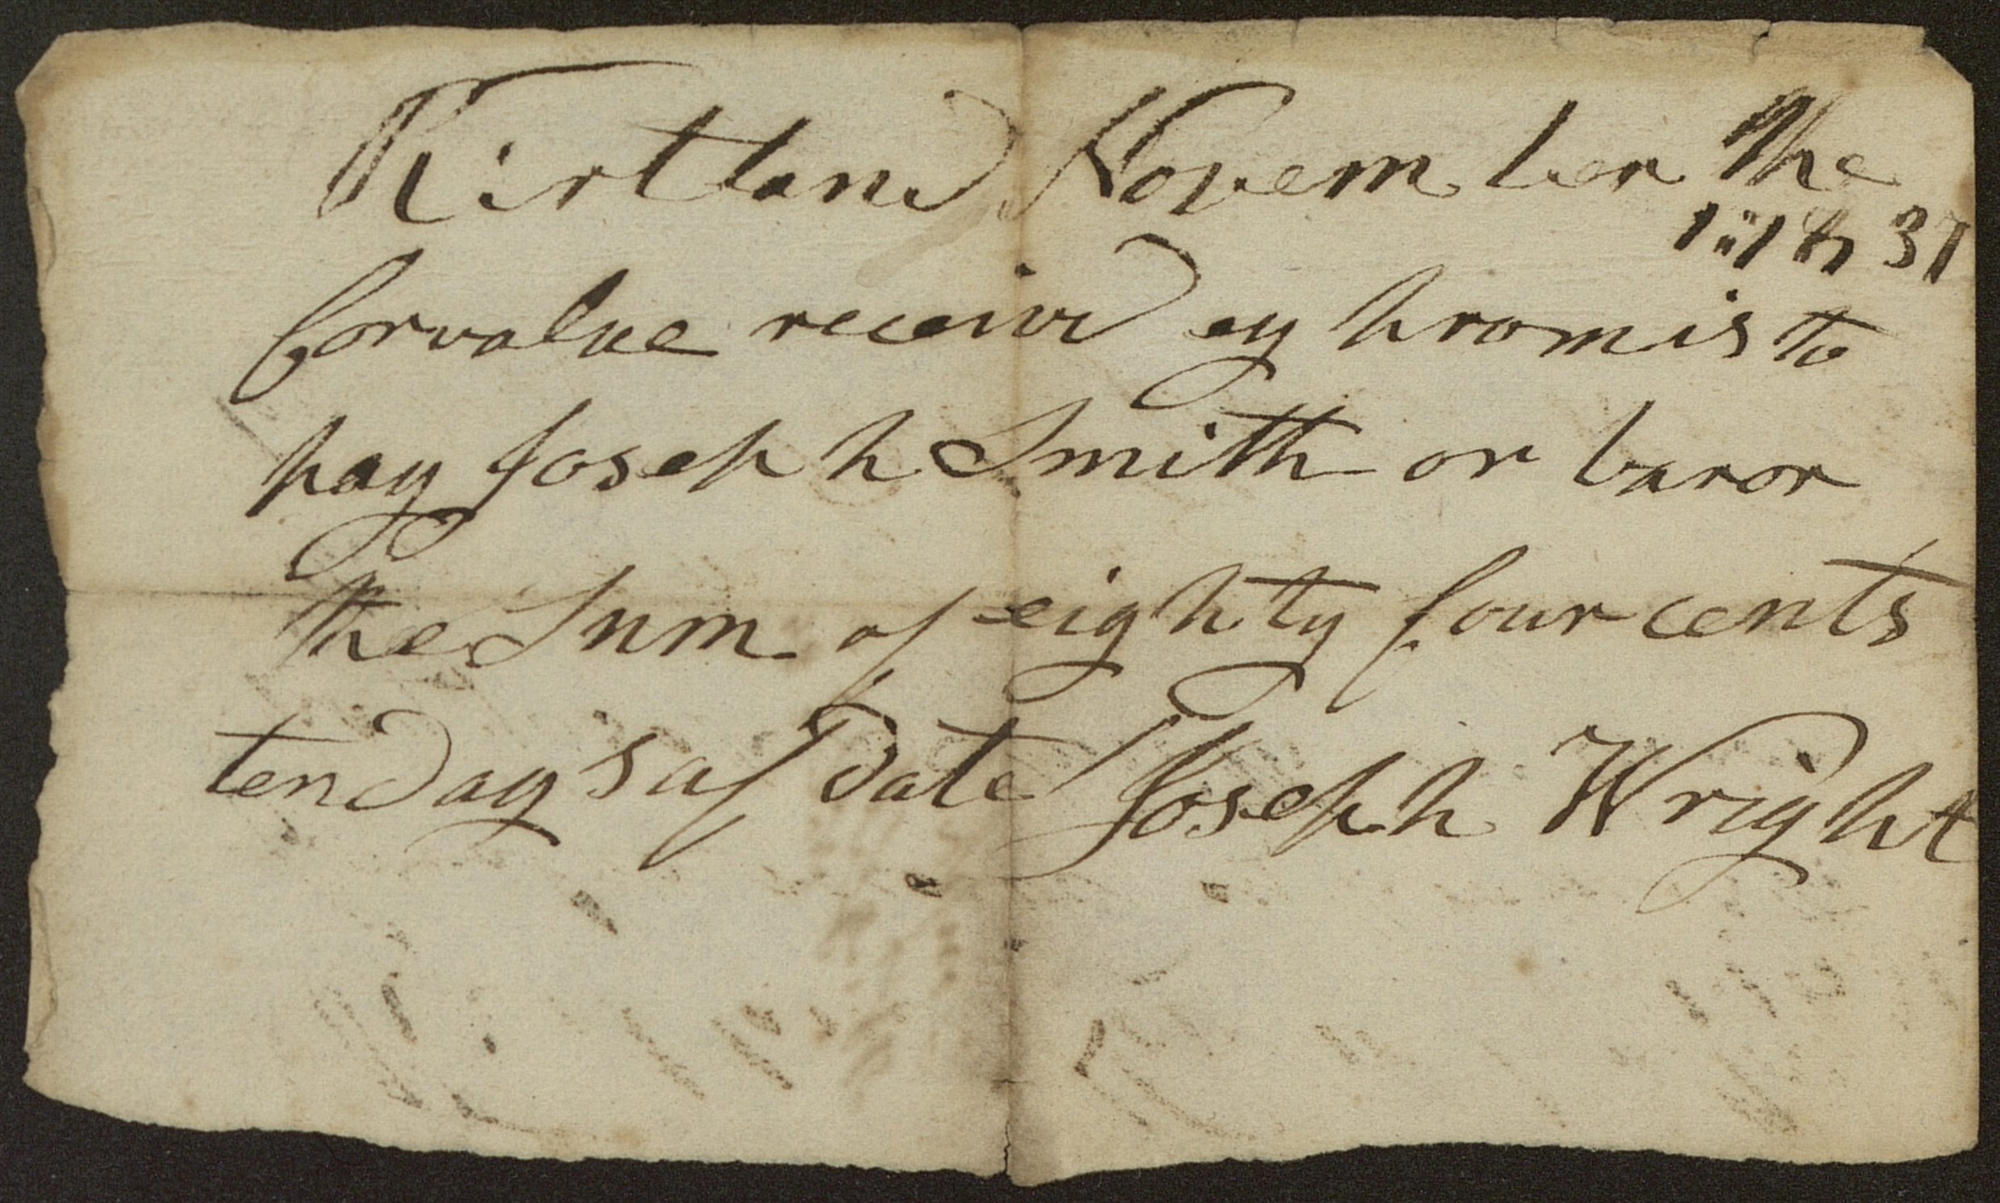 Kirtland November the
1 1831
for value receivd ey promis to
pay Joseph Smith or baror
the Sum of eighty four cents
ten days af date Joseph Wright